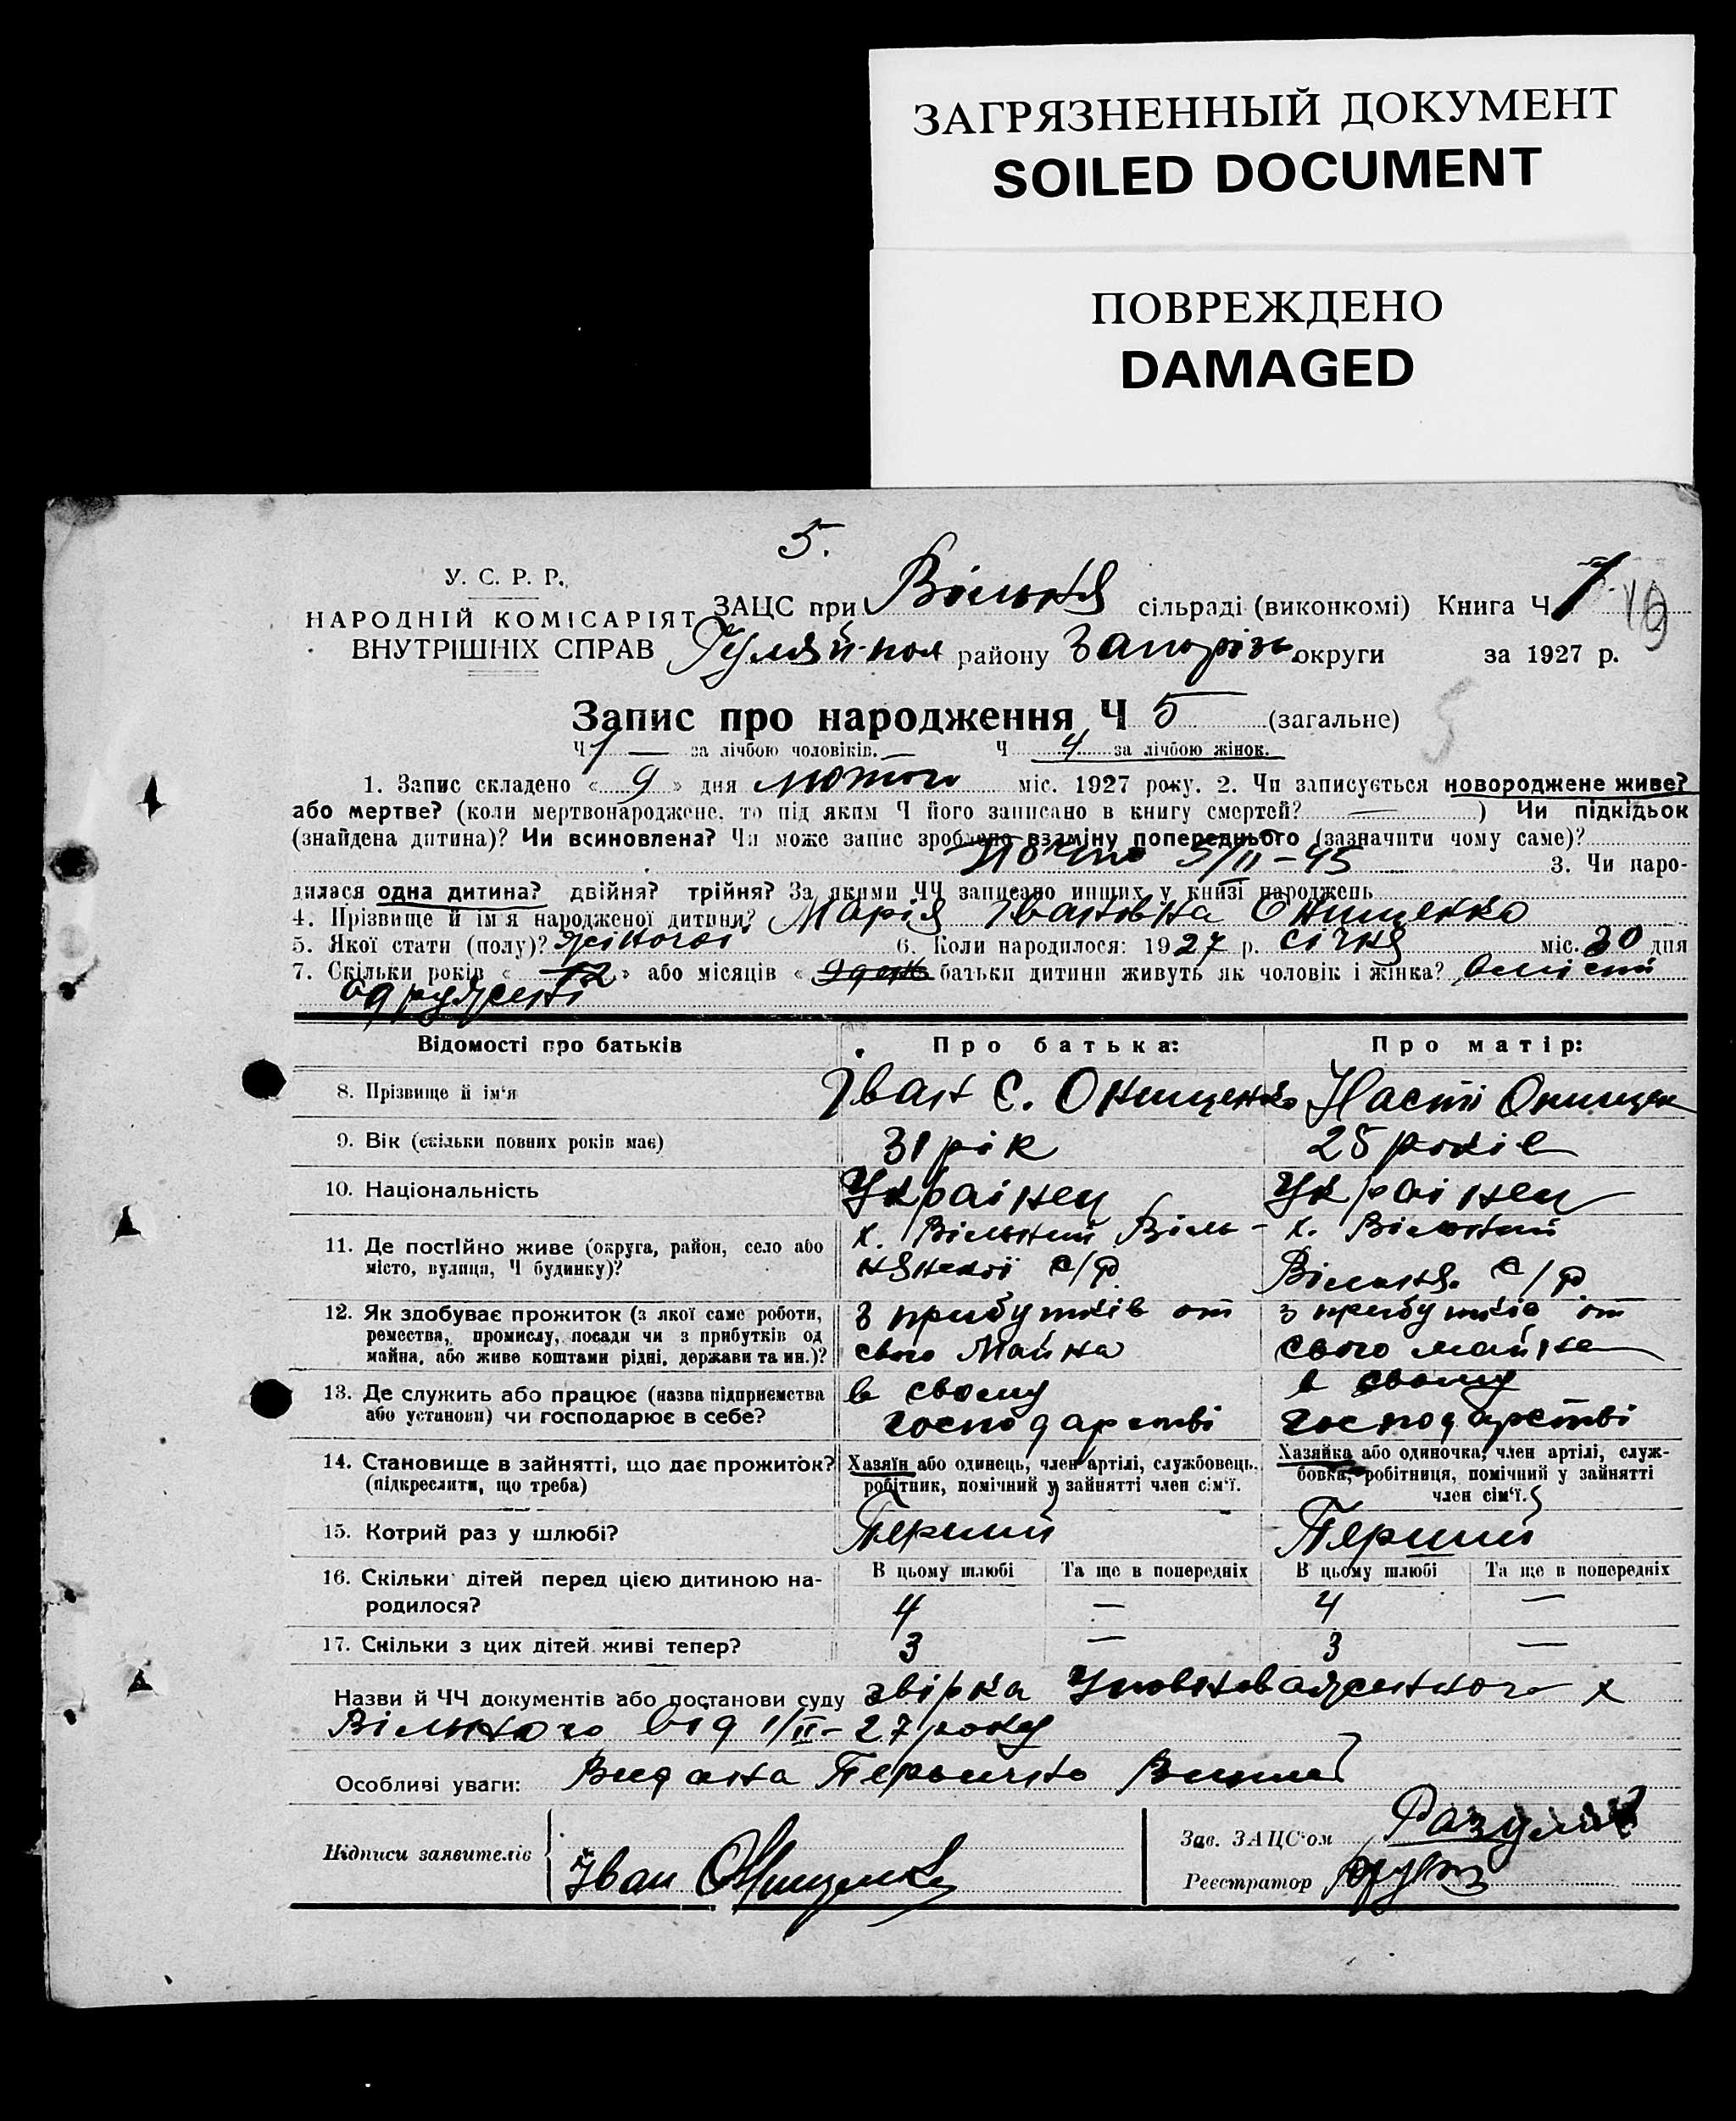 ЗАГРЯЗНЕННЫЙ ДОКУМЕНТ
SOILED DOCUMENT
ПОВРЕЖДЕНО
DAMAGED
5.
У. С. Р. Р.
НАРОДНІЙ КОМІСАРІЯТ
ВНУТРІШНІХ СПРАВ
ЗАЦС при Вільня сільраді (виконкомі) Книга Ч 1 19
Гуляй-пол району Запоріз. округи за 1927 р.
Запис про народження Ч 5 (загальне) 5
Ч 1 — за лічбою чоловіків. — Ч 4 за лічбою жінок.
1. Запис складено « 9 » дня лютого міс. 1927 року. 2. Чи записується новороджене живе?
або мертве? (коли мертвонароджене, то під яким Ч його записано в книгу смертей? — ) Чи підкідьок
(знайдена дитина)? Чи всиновлена? Чи може запис зроблено взаміну попереднього (зазначити чому саме)?
5/II-45 3. Чи наро-
дилася одна дитина? двійня? трійня? За якими ЧЧ записано инших у книзі народжень
4. Прізвище й ім'я народженої дитини? Марія Івановна Онищенко
5. Якої стати (полу)? жіночої 6. Коли народилося: 1927 р. січня міс. 30 дня
7. Скільки років « 12 » або місяців « » батьки дитини живуть як чоловік і жінка?
одружені
Відомості про батьків Про батька: Про матір:
8. Прізвище й ім'я Іван С. Онищенко Насті Онищен
9. Вік (скільки повних років має) 31 рік 25 років
10. Національність Українец Українец
11. Де постійно живе (округа, район, село або місто, вулиця, Ч будинку)? х. Вільний Віль- х. Вільний
нянської с/р Вільня. с/р
12. Як здобуває прожиток (з якої саме роботи, ремества, промислу, посади чи з прибутків од майна, або живе коштами рідні, держави та ин.)? з прибутків от з прибутків от
свого майна свого майна
13. Де служить або працює (назва підприємства або установи) чи господарює в себе? в свому в свому
господарстві господарстві
14. Становище в зайнятті, що дає прожиток? (підкреслити, що треба) Хазяїн або одинець, член артілі, службовець, робітник, помічний у зайнятті член сім'ї. Хазяйка або одиночка, член артілі, служ-
бовка, робітниця, помічний у зайнятті
член сім'ї.
15. Котрий раз у шлюбі? Перший Перший
16. Скільки дітей перед цією дитиною на-
родилося? В цьому шлюбі Та ще в попередніх В цьому шлюбі Та ще в попередніх
4 — 4 —
17. Скільки з цих дітей живі тепер? 3 — 3 —
Назви й ЧЧ документів або постанови суду звірка Уповноваженного х
Вільного від 1/II-27 року
Особливі уваги: Видана
Підписи заявителів Іван Онищенко
Зав. ЗАЦС'ом
Реєстратор